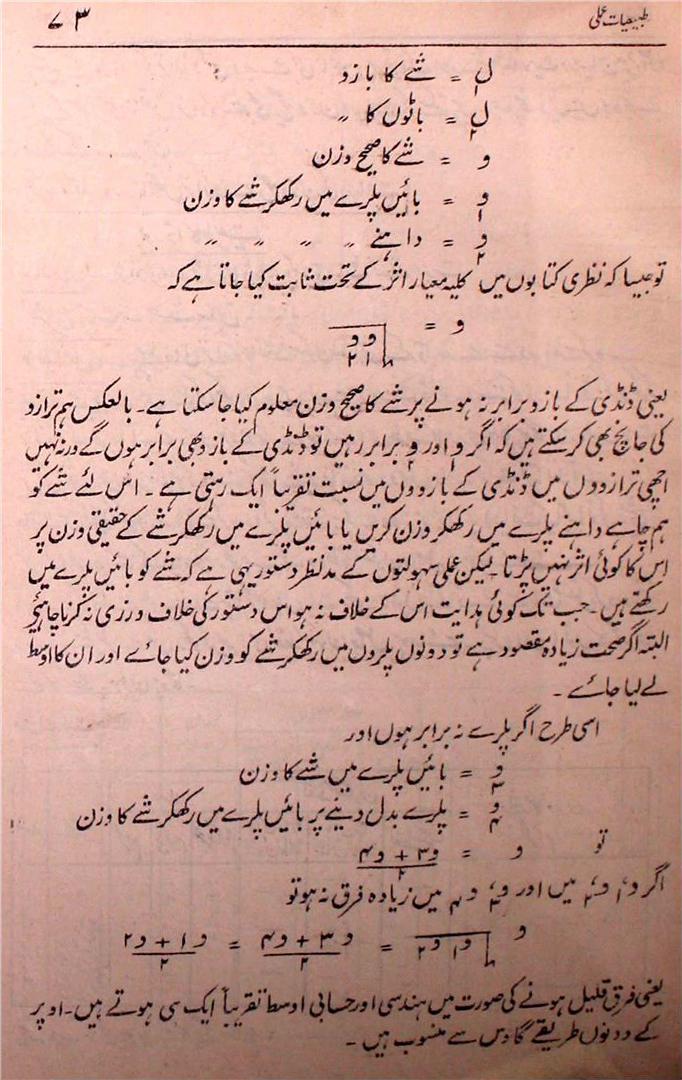 طبیعیات عملی ۷۳
ل۱ = شے کا بازو
ل۲ = باٹوں کا 〃
و = شے کا صحیح وزن
و۱ = بائیں پلرے میں رکھکر شے کا وزن
و۲ = داہنے 〃 〃 〃 〃
تو جیسا کہ نظری کتابوں میں کلیہ معیار اثر کے تحت ثابت کیا جاتا ہے کہ
و = √و۱ و۲
یعنی ڈنڈی کے بازو برابر نہ ہونے پر شے کا صحیح وزن معلوم کیا جا سکتا ہے۔ بالعکس ہم ترازو
کی جانچ بھی کر سکتے ہیں کہ اگر و۱ اور و۲ برابر رہیں تو ڈنڈی کے بازو بھی برابر ہوں گے ورنہ نہیں
اچھی ترازووں میں ڈنڈی کے بازووں میں نسبت تقریباً ایک رہتی ہے۔ اس لئے شے کو
ہم چاہے داہنے پلرے میں رکھکر وزن کریں یا بائیں پلرے میں رکھکر شے کے حقیقی وزن پر
اس کا کوئی اثر نہیں پڑتا۔ لیکن عملی سہولتوں کے مدنظر دستور یہی ہے کہ شے کو بائیں پلرے میں
رکھتے ہیں۔ جب تک کوئی ہدایت اس کے خلاف نہ ہو اس دستور کی خلاف ورزی نہ کرنا چاہئے
البتہ اگر صحت زیادہ مقصود ہے تو دونوں پلروں میں رکھکر شے کو وزن کیا جائے اور ان کا اوسط
لے لیا جائے۔
اسی طرح اگر پلرے نہ برابر ہوں اور
و۳ = بائیں پلرے میں شے کا وزن
و۴ = پلرے بدل دینے پر بائیں پلرے میں رکھکر شے کا وزن
تو و = (و۳ + و۴)/۲
اگر و۱، و۲ میں اور و۳، و۴ میں زیادہ فرق نہ ہو تو
و = √و۱ و۲ = (و۳ + و۴)/۲ = (و۱ + و۲)/۲
یعنی فرق قلیل ہونے کی صورت میں ہندسی اور حسابی اوسط تقریباً ایک سی ہوتے ہیں۔ اوپر
کے دونوں طریقے گاؤس سے منسوب ہیں۔